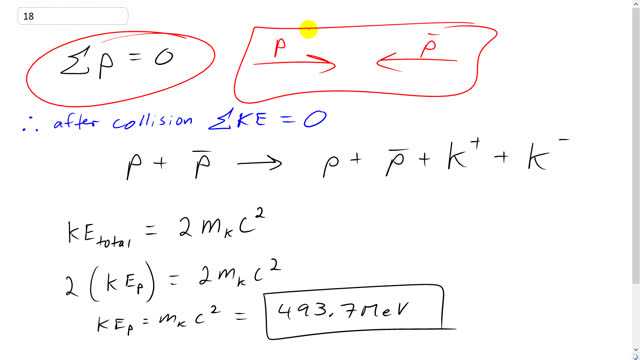 18
Σp = 0
p p̄
∴ after collision ΣKE = 0
p + p̄ → p + p̄ + K⁺ + K⁻
KE_total = 2 m_K c²
2 (KE_p) = 2 m_K c²
KE_p = m_K c² = 493.7 MeV